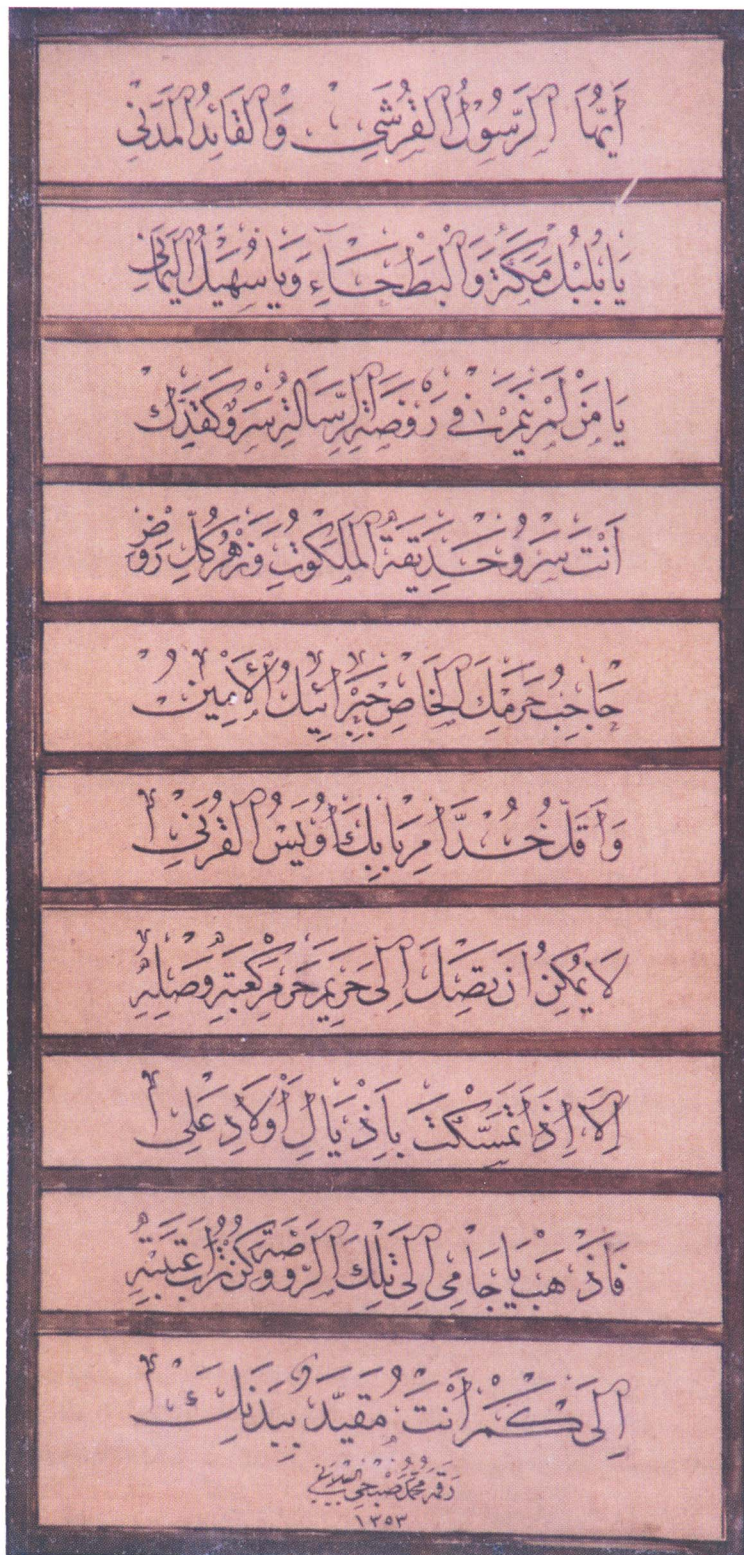 أَيُّهَا ٱلرَّسُولُ ٱلْقُرَشِيّ وَٱلْقَائِدُ ٱلْمَدَنِي
يَا بُلْبُلَ مَكَّةَ وَٱلْبَطْحَاءِ وَيَا سُهَيْلُ ٱلْيَمَانِي
يَا مَنْ لَمْ يَنْمُ فِي رَوْضَةِ ٱلرِّسَالَةِ سَرْوٌ كَقَدِّكَ
أَنْتَ سَرْوُ حَدِيقَةِ ٱلْمَلَكُوتِ وَزَهْرُ كُلِّ رَوْضٍ
حَاجِبُ حَرَمِكَ ٱلْخَاصِّ جِبْرَائِيلُ ٱلْأَمِينُ
وَأَقَلُّ خُدَّامِ بَابِكَ أُوَيْسُ ٱلْقَرَنِي
لَا يُمْكِنُ أَنْ تَصِلَ إِلَى حَرِيمِ حَرَمِ كَعْبَةِ وَصْلِهِ
إِلَّا إِذَا تَمَسَّكْتَ بِأَذْيَالِ أَوْلَادِ عَلِي
فَاذْهَبْ يَا جَامِي إِلَى تِلْكَ ٱلرَّوْضَةِ وَكُنْ تُرَابَ عَتَبَتِهِ
إِلَى كَمْ أَنْتَ مُقَيَّدٌ بِبَدَنِكَ
رقمه محمد صبحي
١٣٥٣